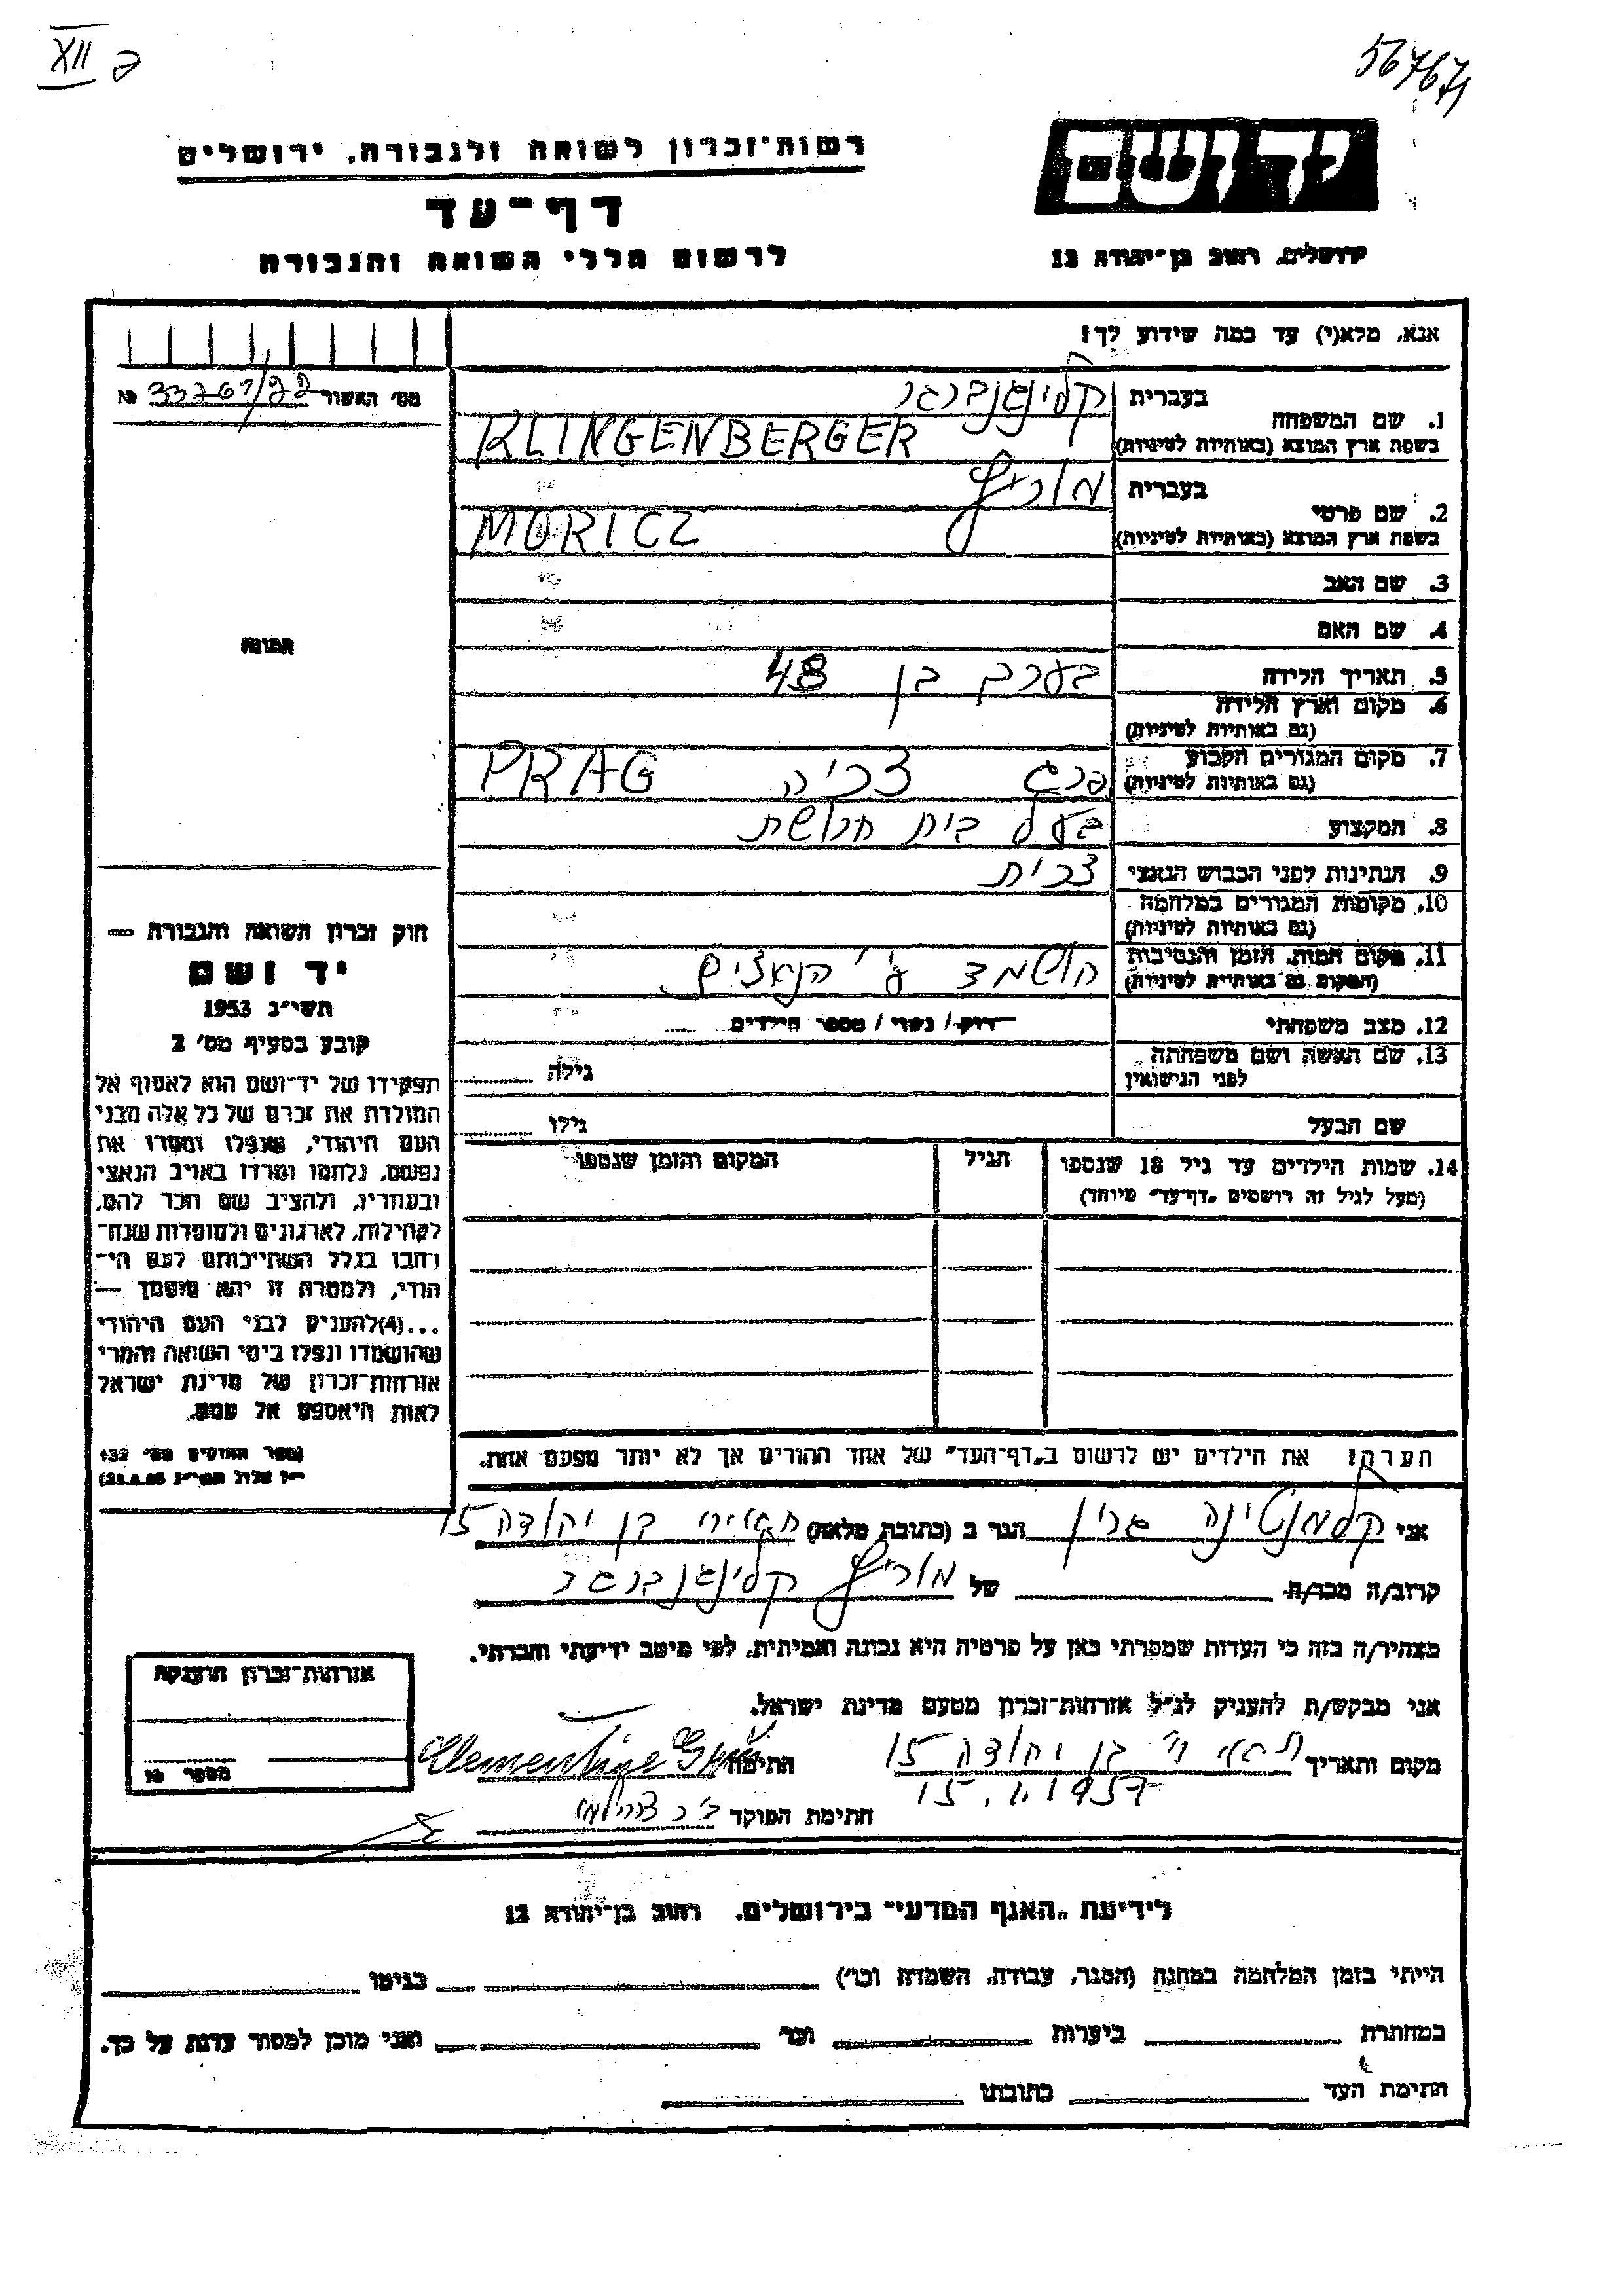 XII
567671
יד ושם
רשות־זכרון לשואה ולגבורה, ירושלים
דף־עד
לרשום חללי השואה והגבורה
ירושלים, רחוב בן־יהודה 12
אנא, מלא(י) עד כמה שידוע לך!
מס׳ האשור 33767/22 №
בעברית קלינגנברגר
1. שם המשפחה
בשפת ארץ המוצא (באותיות לטיניות) KLINGENBERGER
בעברית מוריץ
2. שם פרטי
בשפת ארץ המוצא (באותיות לטיניות) MORICZ
3. שם האב
4. שם האם
5. תאריך הלידה בערך בן 48
6. מקום וארץ הלידה
(גם באותיות לטיניות)
7. מקום המגורים הקבוע פרג צכיה PRAG
(גם באותיות לטיניות)
8. המקצוע בעל בית חרושת
9. הנתינות לפני הכבוש הנאצי צכית
10. מקומות המגורים במלחמה
(גם באותיות לטיניות)
11. מקום המות, הזמן והנסיבות הושמד ע״י הנאצים
(המקום גם באותיות לטיניות)
12. מצב משפחתי רווק / נשוי / מספר הילדים
13. שם האשה ושם משפחתה גילה
לפני הנישואין
שם הבעל גילו
14. שמות הילדים עד גיל 18 שנספו הגיל המקום והזמן שנספו
(מעל לגיל זה רושמים „דף־עד״ מיוחד)
הערה! את הילדים יש לרשום ב„דף־העד״ של אחד ההורים אך לא יותר מפעם אחת.
התמונה
חוק זכרון השואה והגבורה —
יד ושם
תשי״ג 1953
קובע בסעיף מס׳ 2
תפקידו של יד־ושם הוא לאסוף אל
המולדת את זכרם של כל אלה מבני
העם היהודי, שנפלו ומסרו את
נפשם, נלחמו ומרדו באויב הנאצי
ובעוזריו, ולהציב שם וזכר להם,
לקהילות, לארגונים ולמוסדות שנח־
רבו בגלל השתייכותם לעם הי־
הודי, ולמטרה זו יהא מוסמך —
...(4) להעניק לבני העם היהודי
שהושמדו ונפלו בימי השואה והמרי
אזרחות־זכרון של מדינת ישראל
לאות היאספם אל עמם.
(ספר החוקים מס׳ 132
אני קלמנטינה גרין הגר ב (כתובת מלאה) בן יהודה 15
קרוב/ה מכר/ה של מוריץ קלינגנברגר
מצהיר/ה בזה כי העדות שמסרתי כאן על פרטיה היא נכונה ואמיתית, לפי מיטב ידיעתי והכרתי.
אני מבקש/ת להעניק לנ״ל אזרחות־זכרון מטעם מדינת ישראל.
מקום ותאריך בן יהודה 15 חתימה Clementine Grün
15.1.1957
חתימת הפוקד
אזרחות־זכרון הוענקה
מספר №
לידיעת „האגף המדעי״ בירושלים, רחוב בן־יהודה 12
הייתי בזמן המלחמה במחנה (הסגר, עבודה, השמדה וכו׳) בגיטו
במחתרת ביערות ועד ואני מוכן למסור עדות על כך.
חתימת העד כתובתו